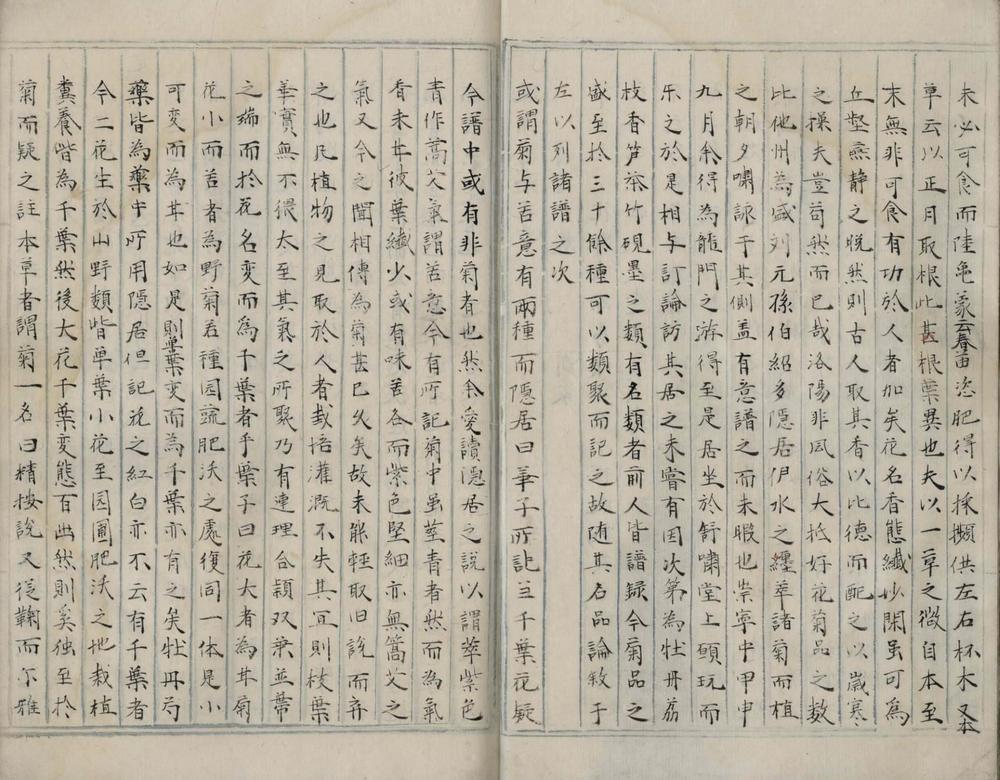 未必可食而陸龜蒙云春苗恣肥得以採擷供左右杯木又本
草云以正月取根此甚根葉異也夫以一草之微自本至
末無非可食有功於人者加矣花名香態纖妙閑虽可為
丘壑燕静之晚然則古人取其香以比德而配之以歲寒
之操夫豈苟然而已哉洛陽非風俗大抵好花菊品之数
比他州為盛刘元孫伯紹多隱居伊水之纏萃諸菊而植
之朝夕嘯詠于其側盖有意譜之而未暇也崇寧中甲申
九月余得為龍門之游得至是居坐於舒嘯堂上頭玩而
乐之於是相与訂論訪其居之未甞有因次第為牡丹荔
枝香笋茶竹硯墨之類有名類者前人皆譜録今菊品之
盛至於三十餘種可以類聚而記之故随其名品論敘于
左以列諸譜之次
或謂菊与苦意有兩種而隱居曰華子所記並千葉花疑
今譜中或有非菊者也然余愛讀隱居之説以謂萃紫色
青作蒿艾氣謂苦意今有所記菊中虽茎青者然而為氣
香未甘彼葉纖少或有味苦各而紫色堅細亦無蒿艾之
氣又今之聞相傳為菊甚已久矣故未能輕取旧説而弃
之也凡植物之見取於人者栽培灌溉不失其宜則枝葉
華實無不猥太至其氣之所聚乃有連理合穎双乗並蒂
之瑞而於花名変而為千葉者乎葉子曰花大者為甘菊
花小而苦者為野菊若種园蔬肥沃之處復同一体是小
可変而為甘也如是則單葉変而為千葉亦有之矣牡丹芍
藥皆為藥中所用隱居但記花之紅白亦不云有千葉者
今二花生於山野類皆单葉小花至园圃肥沃之地栽植
糞養皆為千葉然後大花千葉変態百出然則奚独至於
菊而疑之註本草者謂菊一名曰精按説文從鞠而尔雅